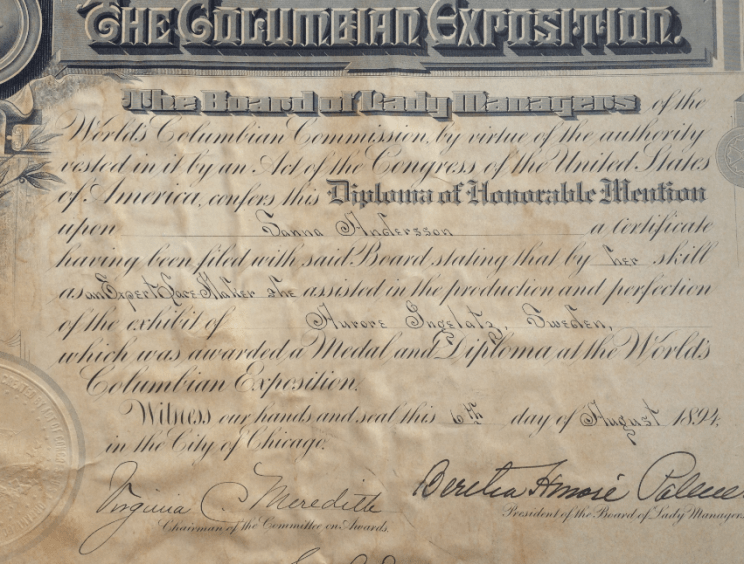 THE COLUMBIAN EXPOSITION.
The Board of Lady Managers of the
World's Columbian Commission, by virtue of the authority
vested in it by an Act of the Congress of the United States
of America, confers this Diploma of Honorable Mention
upon Sanna Andersson a certificate
having been filed with said Board stating that by her skill
as an Expert Lace Maker she assisted in the production and perfection
of the exhibit of Aurore Ingelatz, Sweden,
which was awarded a Medal and Diploma at the World's
Columbian Exposition.
Witness our hands and seal this 6th day of August 1894,
in the City of Chicago.
Virginia C. Meredith Bertha Honoré Palmer
Chairman of the Committee on Awards. President of the Board of Lady Managers